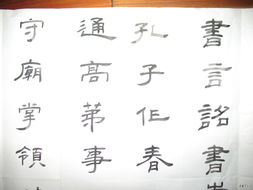 書言詔書
孔子作春
通高第事
守廟掌領